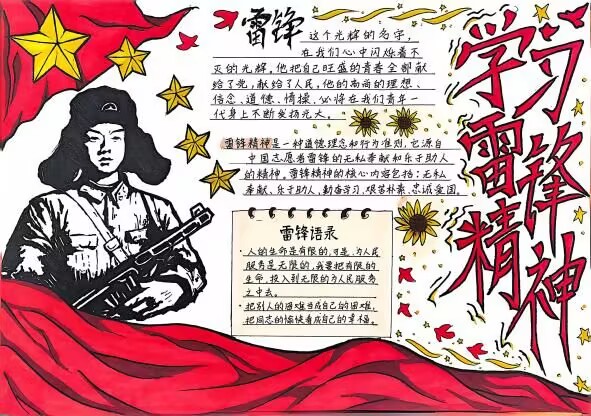 雷锋 这个光辉的名字，
在我们心中闪烁着不
灭的光辉。他把自己旺盛的青春全部献
给了党，献给了人民，他的高尚的理想、
信念、道德、情操，必将在我们青年一
代身上不断发扬光大。
雷锋精神是一种道德理念和行为准则，它源自
中国志愿者雷锋的无私奉献和乐于助人
的精神。雷锋精神的核心内容包括：无私
奉献、乐于助人，勤奋学习，艰苦朴素，忠诚爱国。
雷锋语录
·人的生命是有限的，可是，为人民
服务是无限的，我要把有限的
生命，投入到无限的为人民服务
之中去。
·把别人的困难当成自己的困难，
把同志的愉快看成自己的幸福。
学习
雷锋
精神